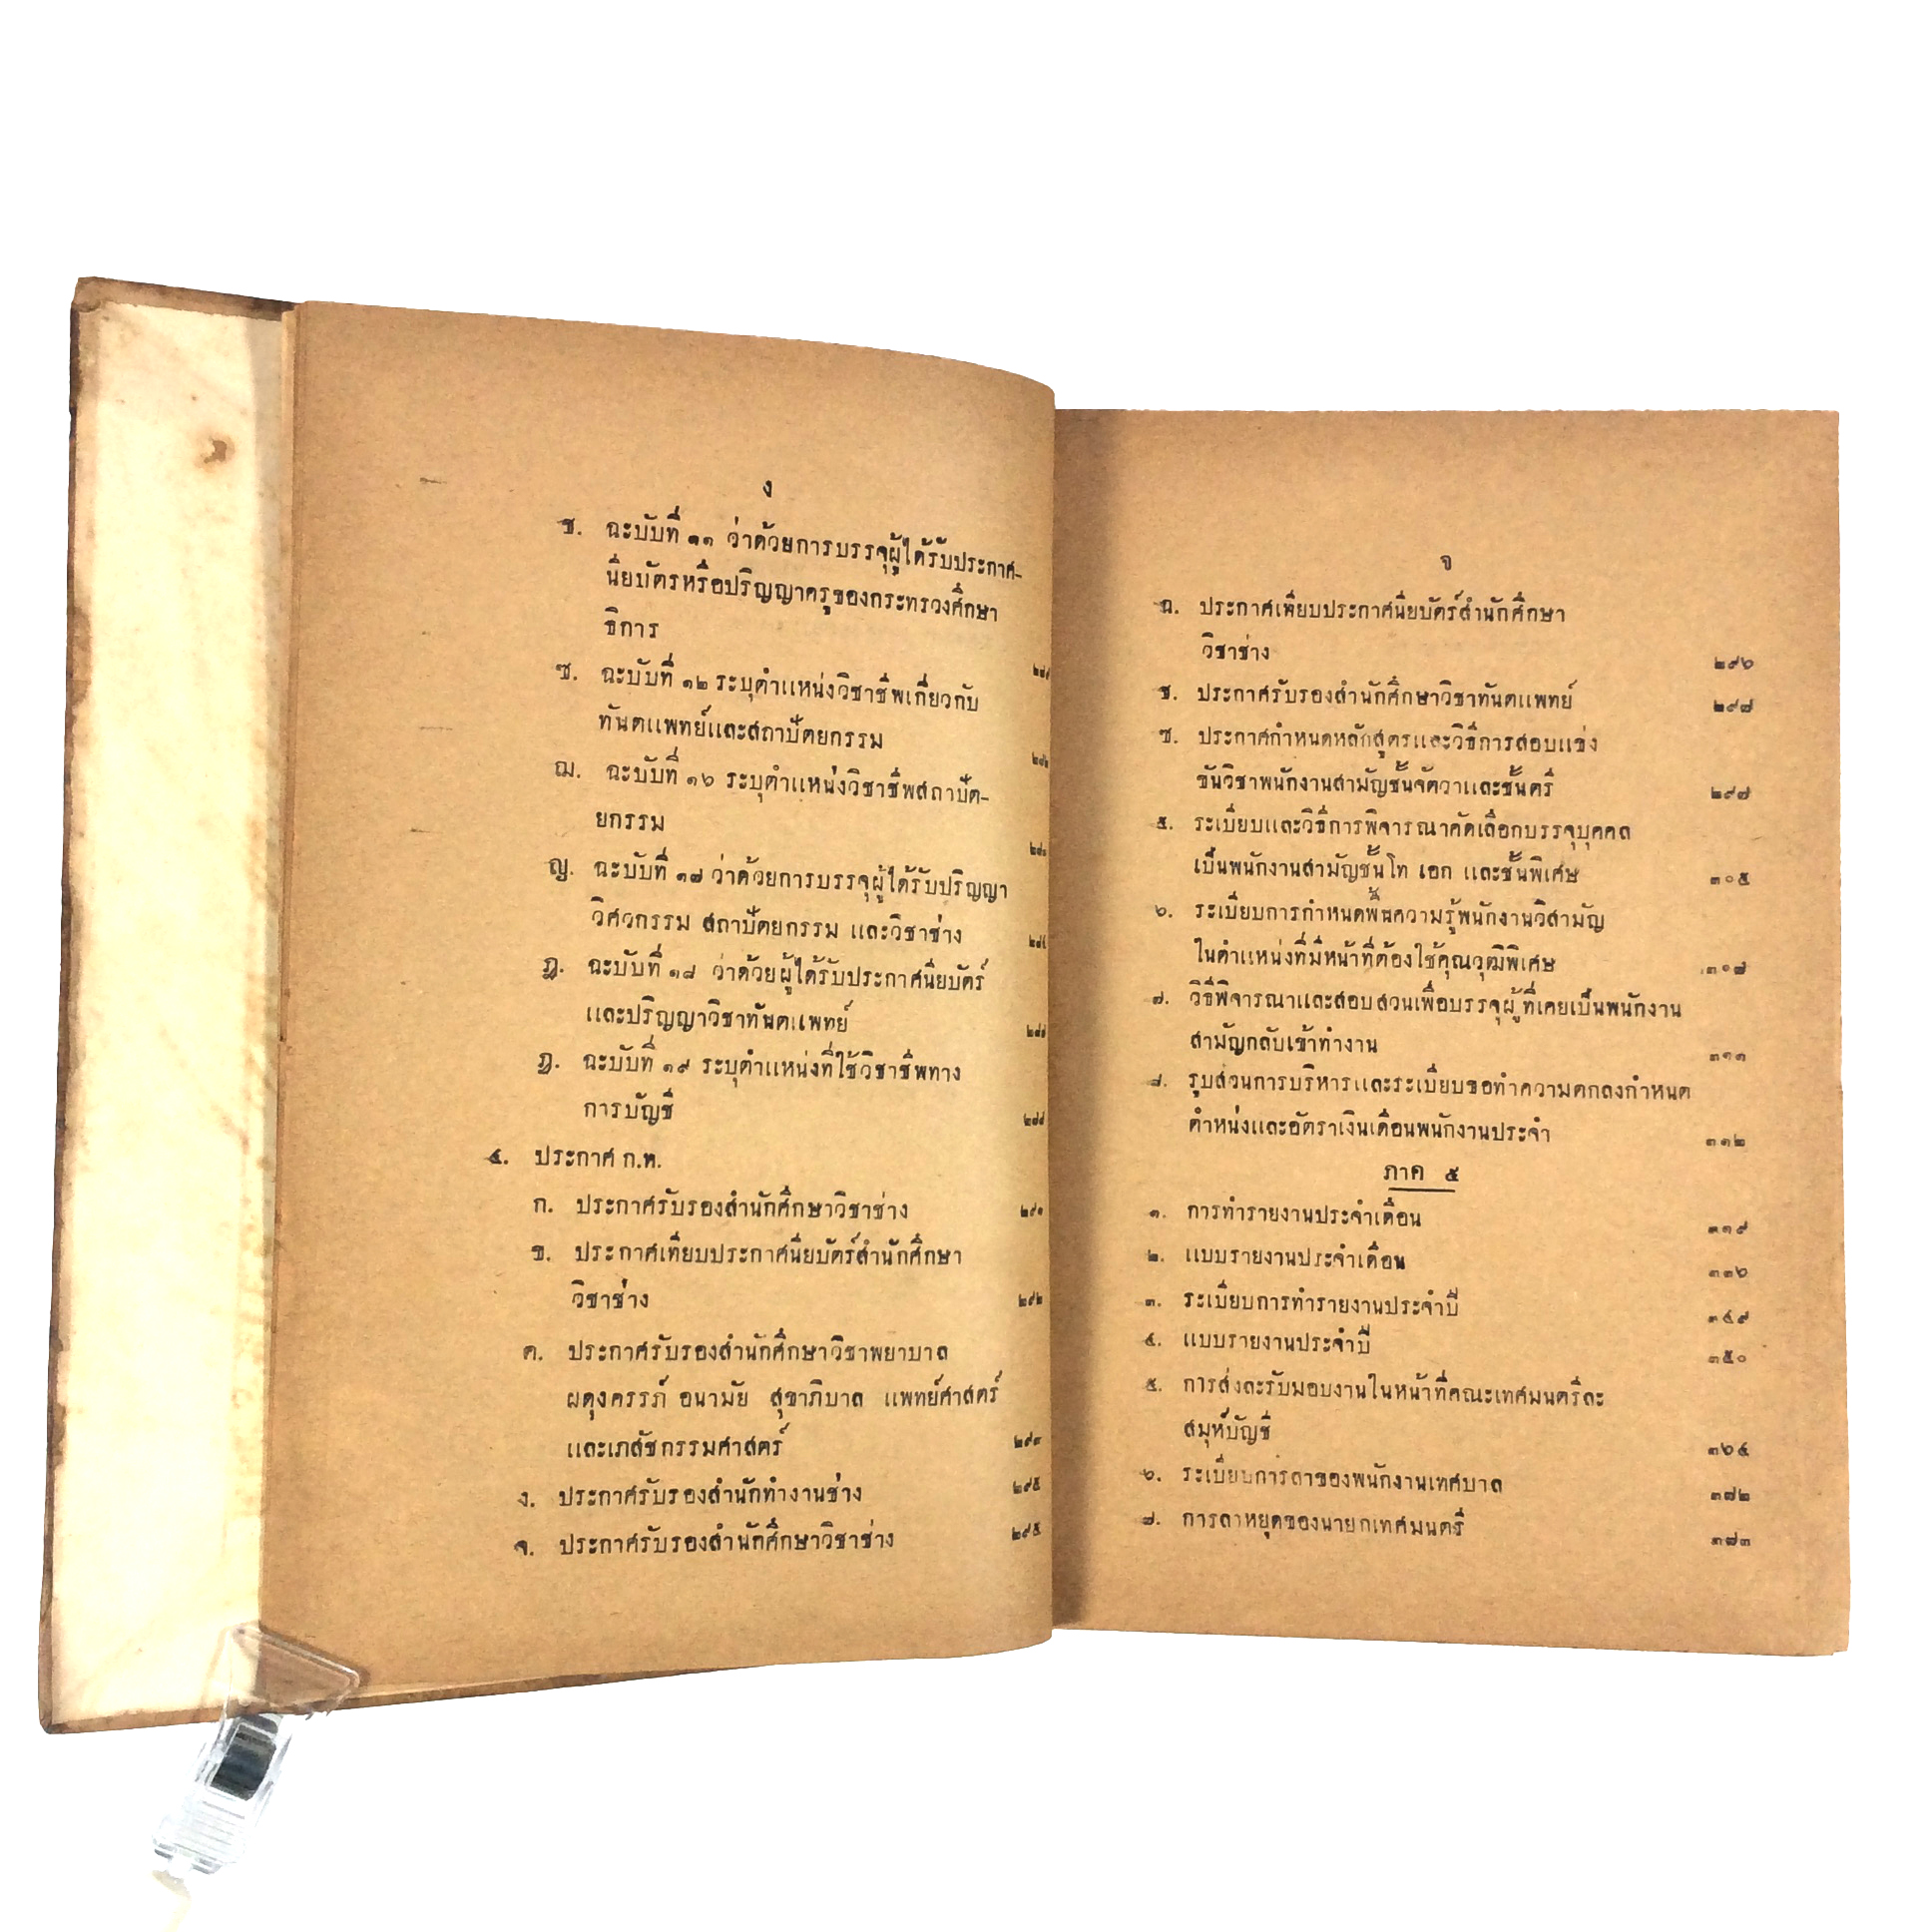 ง
ช. ฉะบับที่ ๑๑ ว่าด้วยการบรรจุผู้ได้รับประกาศ-
นียบัตรหรือปริญญาครุของกระทรวงศึกษา
ธิการ
ซ. ฉะบับที่ ๑๒ ระบุตำแหน่งวิชาชีพเกี่ยวกับ
ทันตแพทย์และสถาปัตยกรรม
ฌ. ฉะบับที่ ๑๖ ระบุตำแหน่งวิชาชีพสถาปัต-
ยกรรม
ญ. ฉะบับที่ ๑๗ ว่าด้วยการบรรจุผู้ได้รับปริญญา
วิศวกรรม สถาปัตยกรรม และวิชาช่าง
ฎ. ฉะบับที่ ๑๘ ว่าด้วยผู้ได้รับประกาศนียบัตร์
และปริญญาวิชาทันตแพทย์
ฏ. ฉะบับที่ ๑๙ ระบุตำแหน่งที่ใช้วิชาชีพทาง
การบัญชี
๔. ประกาศ ก.ท.
ก. ประกาศรับรองสำนักศึกษาวิชาช่าง ๒๙๑
ข. ประกาศเทียบประกาศนียบัตร์สำนักศึกษา
วิชาช่าง ๒๙๒
ค. ประกาศรับรองสำนักศึกษาวิชาพยาบาล
ผดุงครรภ์ อนามัย สุขาภิบาล แพทย์ศาสตร์
และเภสัชกรรมศาสตร์ ๒๙๓
ง. ประกาศรับรองสำนักทำงานช่าง ๒๙๕
จ. ประกาศรับรองสำนักศึกษาวิชาช่าง ๒๙๕
จ
ฉ. ประกาศเทียบประกาศนียบัตร์สำนักศึกษา
วิชาช่าง ๒๙๖
ช. ประกาศรับรองสำนักศึกษาวิชาทันตแพทย์ ๒๙๗
ซ. ประกาศกำหนดหลักสูตรและวิธีการสอบแข่ง
ขันวิชาพนักงานสามัญชั้นจัตวาและชั้นตรี ๒๙๗
๕. ระเบียบและวิธีการพิจารณาคัดเลือกบรรจุบุคคล
เป็นพนักงานสามัญชั้นโท เอก และชั้นพิเศษ ๓๐๕
๖. ระเบียบการกำหนดพื้นความรู้พนักงานวิสามัญ
ในตำแหน่งที่มีหน้าที่ต้องใช้คุณวุฒิพิเศษ ๓๐๗
๗. วิธีพิจารณาและสอบสวนเพื่อบรรจุผู้ที่เคยเป็นพนักงาน
สามัญกลับเข้าทำงาน ๓๑๑
๘. รูปส่วนการบริหารและระเบียบขอทำความตกลงกำหนด
ตำหน่งและอัตราเงินเดือนพนักงานประจำ ๓๑๒
ภาค ๕
๑. การทำรายงานประจำเดือน ๓๑๙
๒. แบบรายงานประจำเดือน ๓๓๖
๓. ระเบียบการทำรายงานประจำปี ๓๔๙
๔. แบบรายงานประจำปี ๓๕๐
๕. การส่งละรับมอบงานในหน้าที่คณะเทศมนตรีละ
สมุห์บัญชี ๓๖๔
๖. ระเบียบการลาของพนักงานเทศบาล ๓๗๒
๗. การลาหยุดของนายกเทศมนตรี ๓๗๓